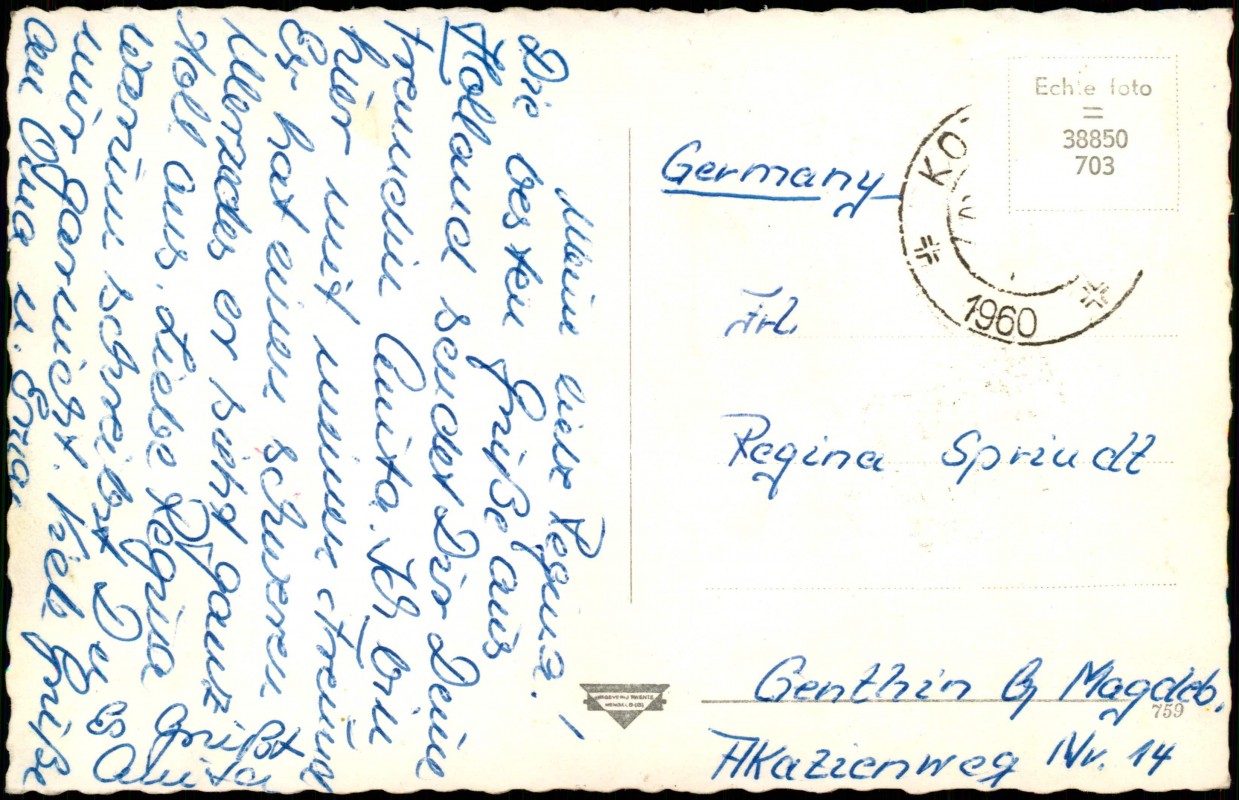 Meine liebe Regina!
Die besten Grüße aus
Holland sendet Dir Deine
Freundin Anita. Ich bin
hier mit meinem Freund
Er hat einen schweren
er sieht ganz
toll aus. Liebe Regina
warum schreibst Du
mir garnicht. Viele Grüße
an Oma u.
Es grüßt
Anita
Echte foto
=
38850
703
Germany
KO
1960
Frl.
Regina Sprindt
Genthin b/ Magdeb.
759
Akazienweg Nr. 14